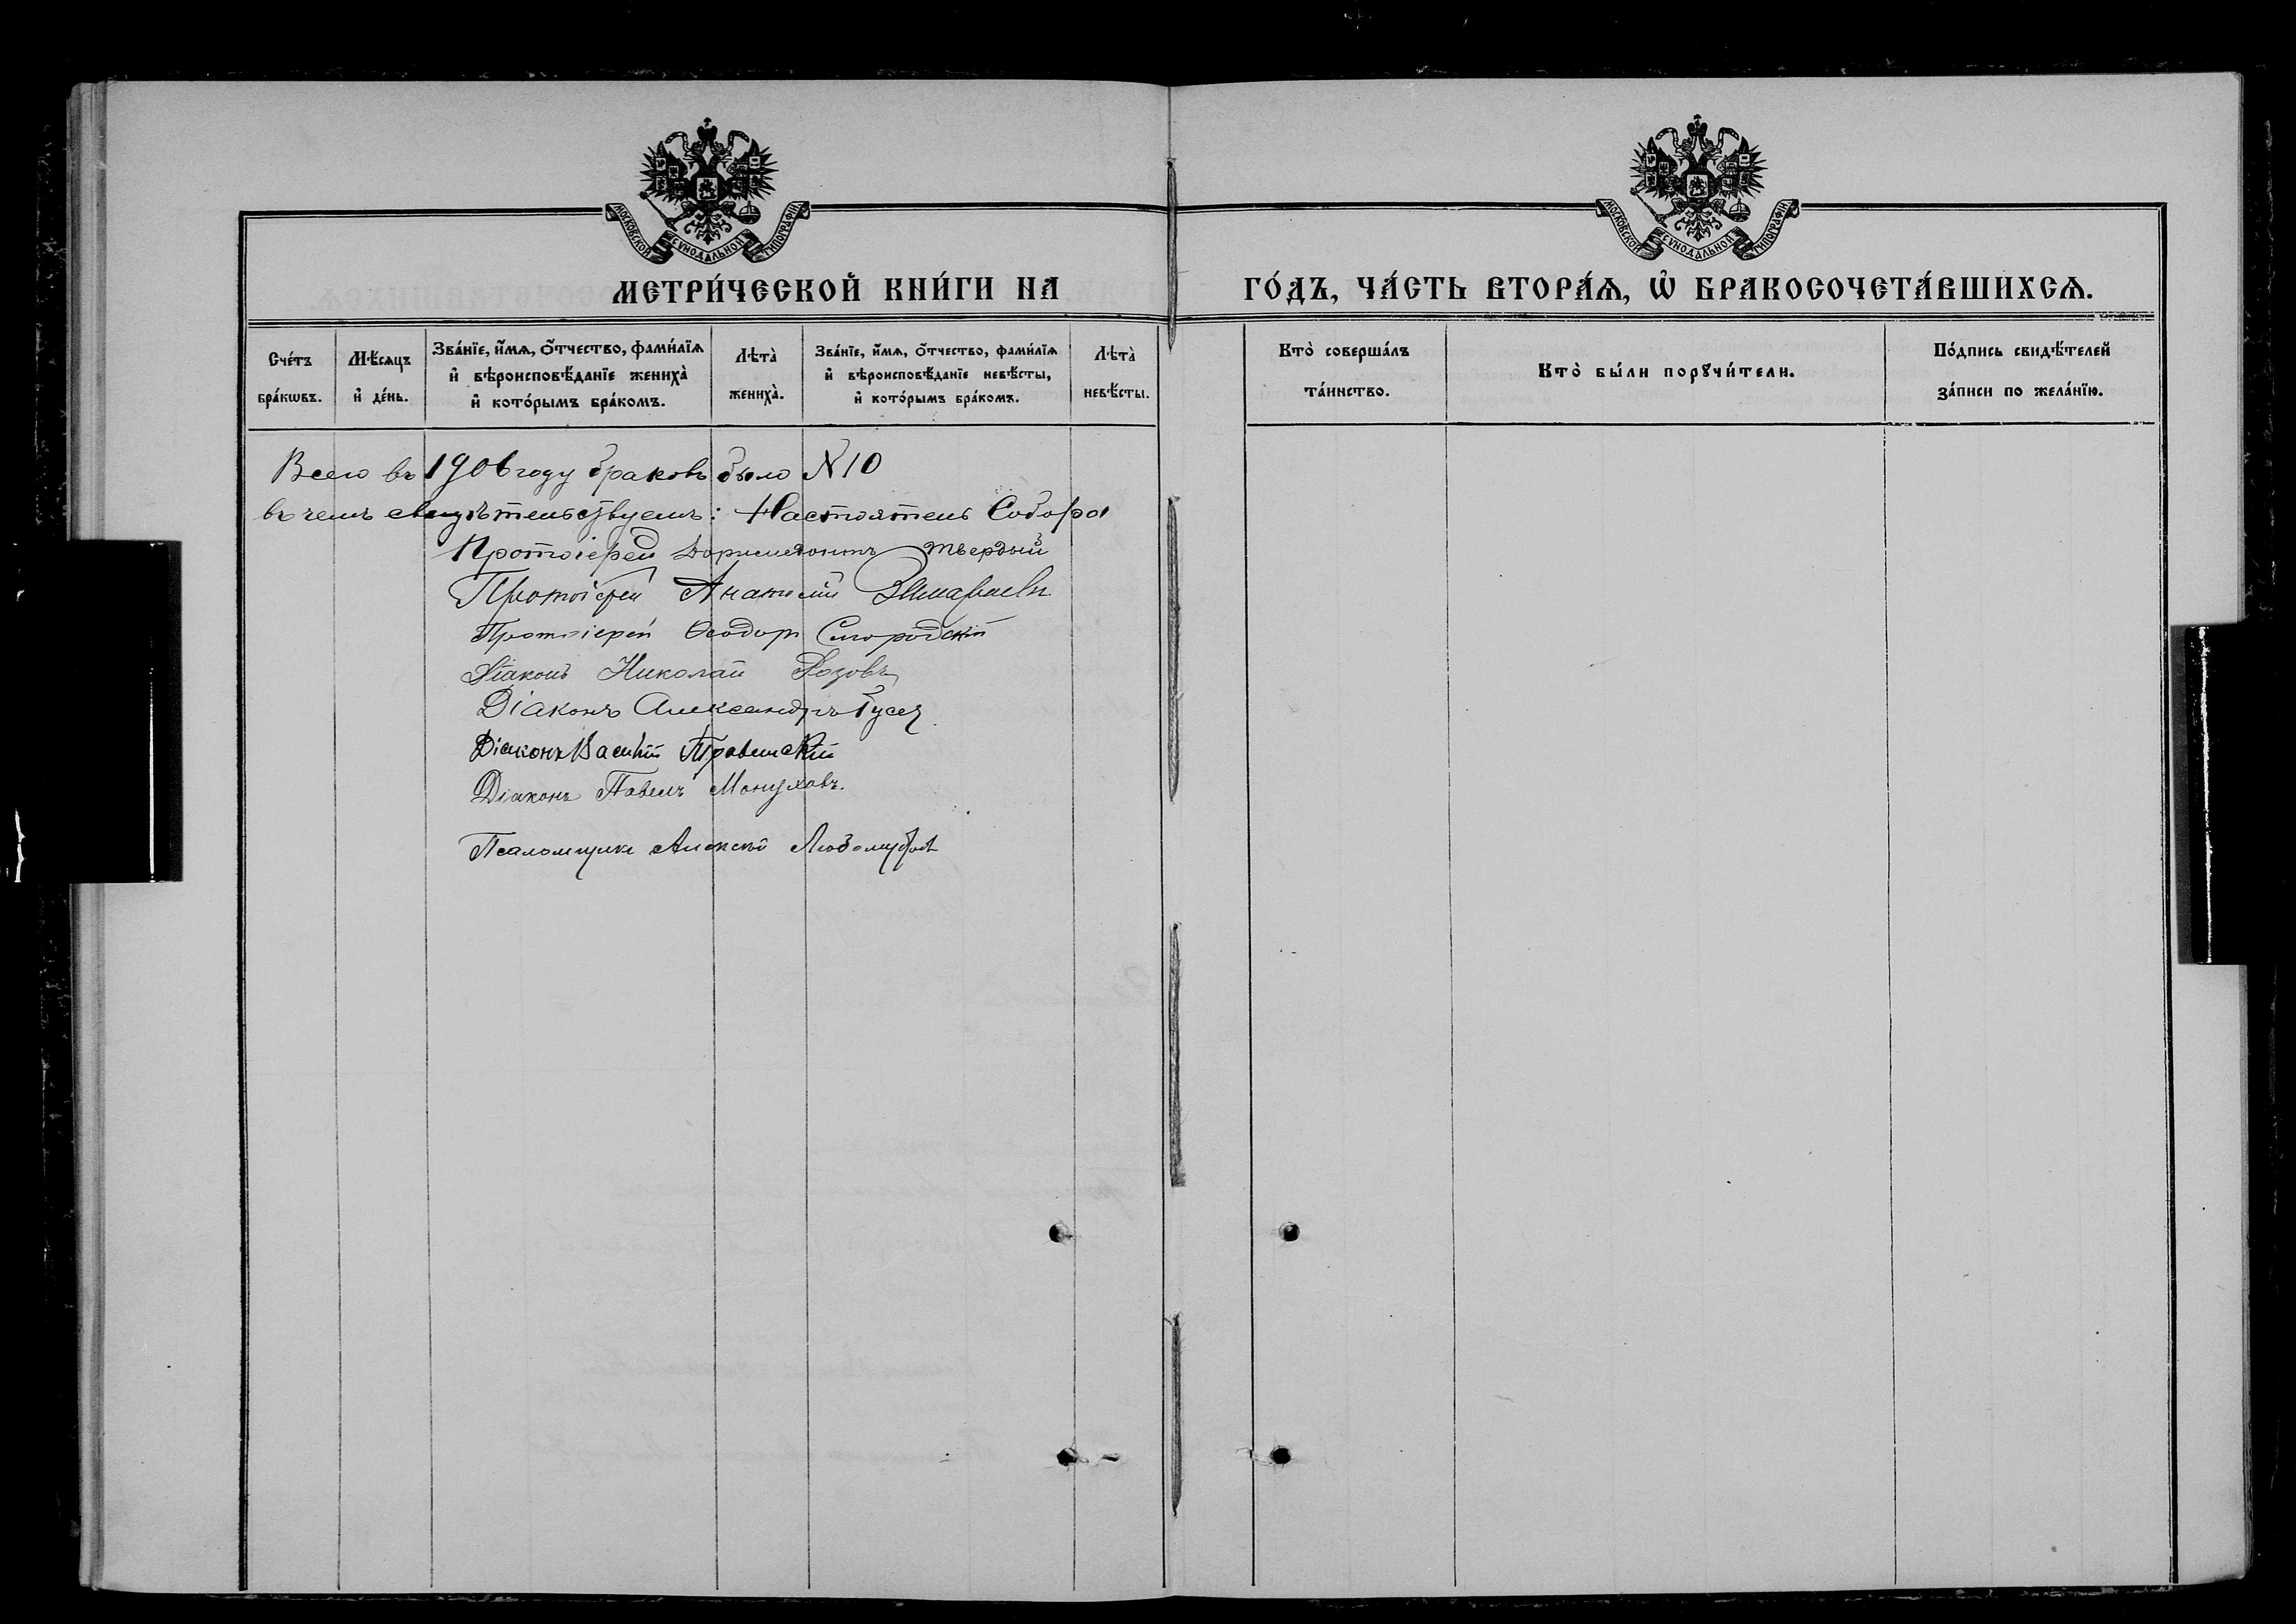 МОСКОВСКОЙ СѴНОДАЛЬНОЙ ТИПОГРАФІИ
МЕТРИ́ЧЕСКОЙ КНИ́ГИ НА
Сче́тъ бра́кѡвъ.
Мѣ́сѧцъ и҆ де́нь.
Зва́нїе, и҆́мѧ, ѻ҆́тчество, фами́лїѧ и҆ вѣроисповѣ́данїе жениха̀ и҆ кото́рымъ бра́комъ.
Лѣта̀ жениха̀.
Зва́нїе, и҆́мѧ, ѻ҆́тчество, фами́лїѧ и҆ вѣроисповѣ́данїе невѣ́сты, и҆ кото́рымъ бра́комъ.
Лѣта̀ невѣ́сты.
Всего въ 1906 году браковъ было № 10
въ чемъ свидѣтельствуемъ: Настоятель Собора
Протоіерей Доримедонтъ Твердый
Протоіерей Анатолій
Протоіерей Ѳеодоръ
Діаконъ Николай Розовъ
Діаконъ Александръ Гусев
Діаконъ Василій
Діаконъ Павелъ
Псаломщикъ Алексѣй Любомудровъ
МОСКОВСКОЙ СѴНОДАЛЬНОЙ ТИПОГРАФІИ
ГО́ДЪ, ЧА́СТЬ ВТОРА́Ѧ, Ѡ҆ БРАКОСОЧЕТА́ВШИХСѦ.
Кто̀ соверша́лъ та́инство.
Кто̀ бы́ли порꙋчи́тели.
По́дпись свидѣ́телей за́писи по жела́нїю.